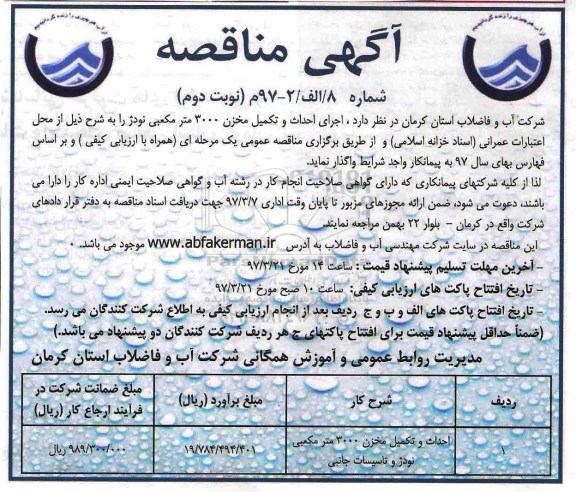 آگهی مناقصه
شماره ۸/الف/۲-۹۷م (نوبت دوم)
شرکت آب و فاضلاب استان کرمان در نظر دارد ، اجرای احداث و تکمیل مخزن ۳۰۰۰ متر مکعبی نودژ را به شرح ذیل از محل
اعتبارات عمرانی (اسناد خزانه اسلامی) و از طریق برگزاری مناقصه عمومی یک مرحله ای (همراه با ارزیابی کیفی ) و بر اساس
فهارس بهای سال ۹۷ به پیمانکار واجد شرایط واگذار نماید.
لذا از کلیه شرکتهای پیمانکاری که دارای گواهی صلاحیت انجام کار در رشته آب و گواهی صلاحیت ایمنی اداره کار را دارا می
باشند، دعوت می شود، ضمن ارائه مجوزهای مزبور تا پایان وقت اداری ۹۷/۳/۷ جهت دریافت اسناد مناقصه به دفتر قرار دادهای
شرکت واقع در کرمان - بلوار ۲۲ بهمن مراجعه نمایند.
این مناقصه در سایت شرکت مهندسی آب و فاضلاب به آدرس www.abfakerman.ir موجود می باشد.
- آخرین مهلت تسلیم پیشنهاد قیمت : ساعت ۱۴ مورخ ۹۷/۳/۲۱
- تاریخ افتتاح پاکت های ارزیابی کیفی: ساعت ۱۰ صبح مورخ ۹۷/۳/۲۱
- تاریخ افتتاح پاکت های الف و ب و ج ردیف بعد از انجام ارزیابی کیفی به اطلاع شرکت کنندگان می رسد.
(ضمناً حداقل پیشنهاد قیمت برای افتتاح پاکتهای ج هر ردیف شرکت کنندگان دو پیشنهاد می باشد.)
مدیریت روابط عمومی و آموزش همگانی شرکت آب و فاضلاب استان کرمان
ردیف شرح کار مبلغ برآورد (ریال) مبلغ ضمانت شرکت در
فرآیند ارجاع کار (ریال)
۱ احداث و تکمیل مخزن ۳۰۰۰ متر مکعبی ۱۹/۷۸۴/۴۹۴/۴۰۱ ۹۸۹/۳۰۰/۰۰۰ ریال
نودژ و تاسیسات جانبی